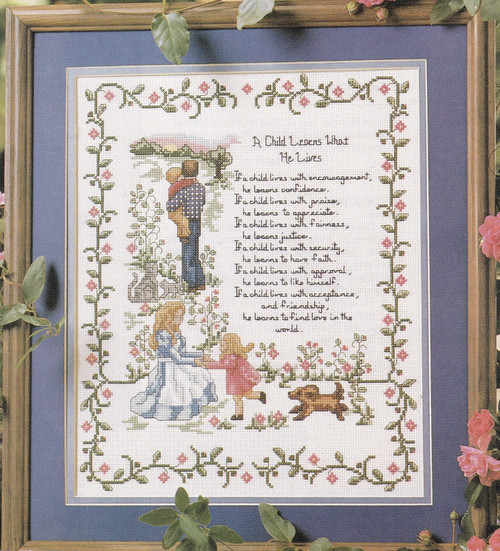 A Child Learns What
He Lives
If a child lives with encouragement,
he learns confidence.
If a child lives with praise,
he learns to appreciate.
If a child lives with fairness,
he learns justice.
If a child lives with security,
he learns to have faith.
If a child lives with approval,
he learns to like himself.
If a child lives with acceptance,
and friendship,
he learns to find love in the
world.